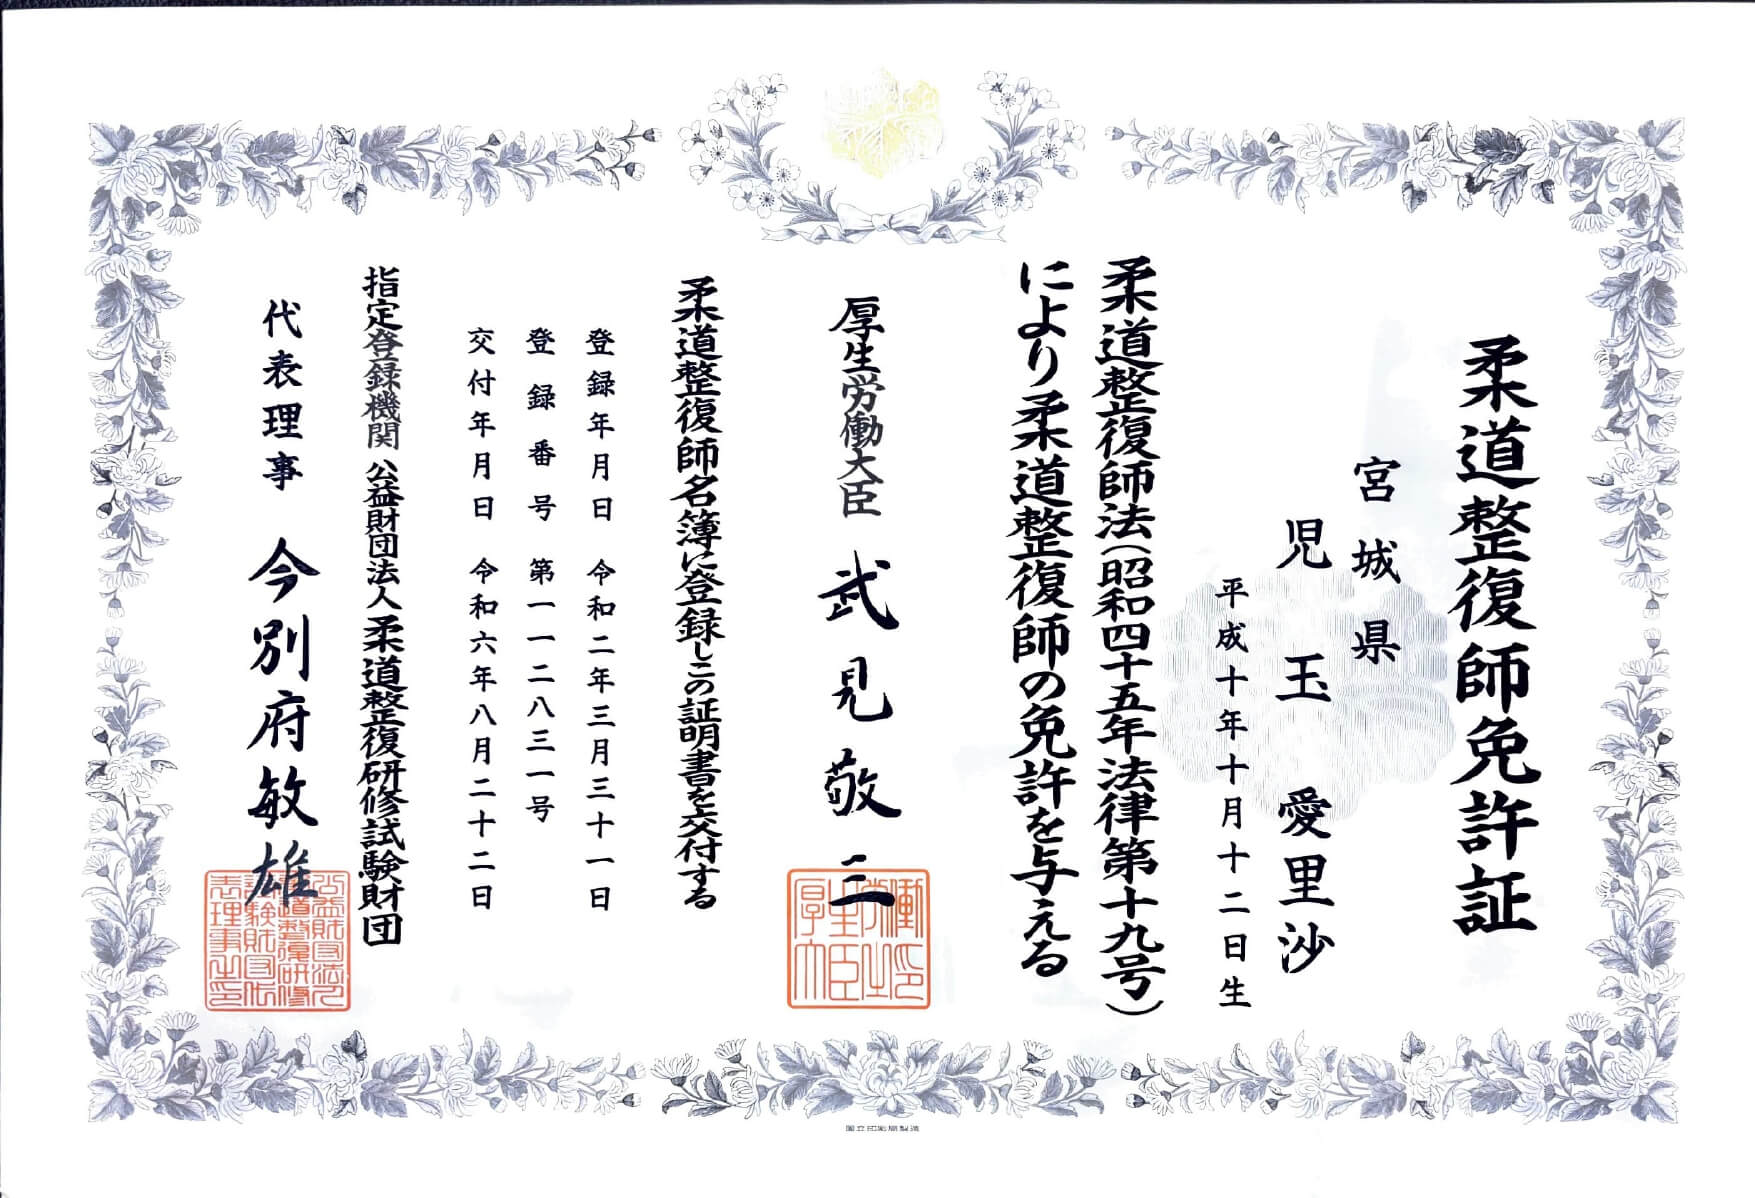 柔道整復師免許証
宮城県
児玉愛里沙
平成十年十月十二日生
柔道整復師法(昭和四十五年法律第十九号)
により柔道整復師の免許を与える
厚生労働大臣 武見敬三
柔道整復師名簿に登録しこの証明書を交付する
登録年月日 令和二年三月三十一日
登録番号 第一一二八三一号
交付年月日 令和六年八月二十二日
指定登録機関 公益財団法人柔道整復研修試験財団
代表理事 今別府敏雄
国立印刷局製造